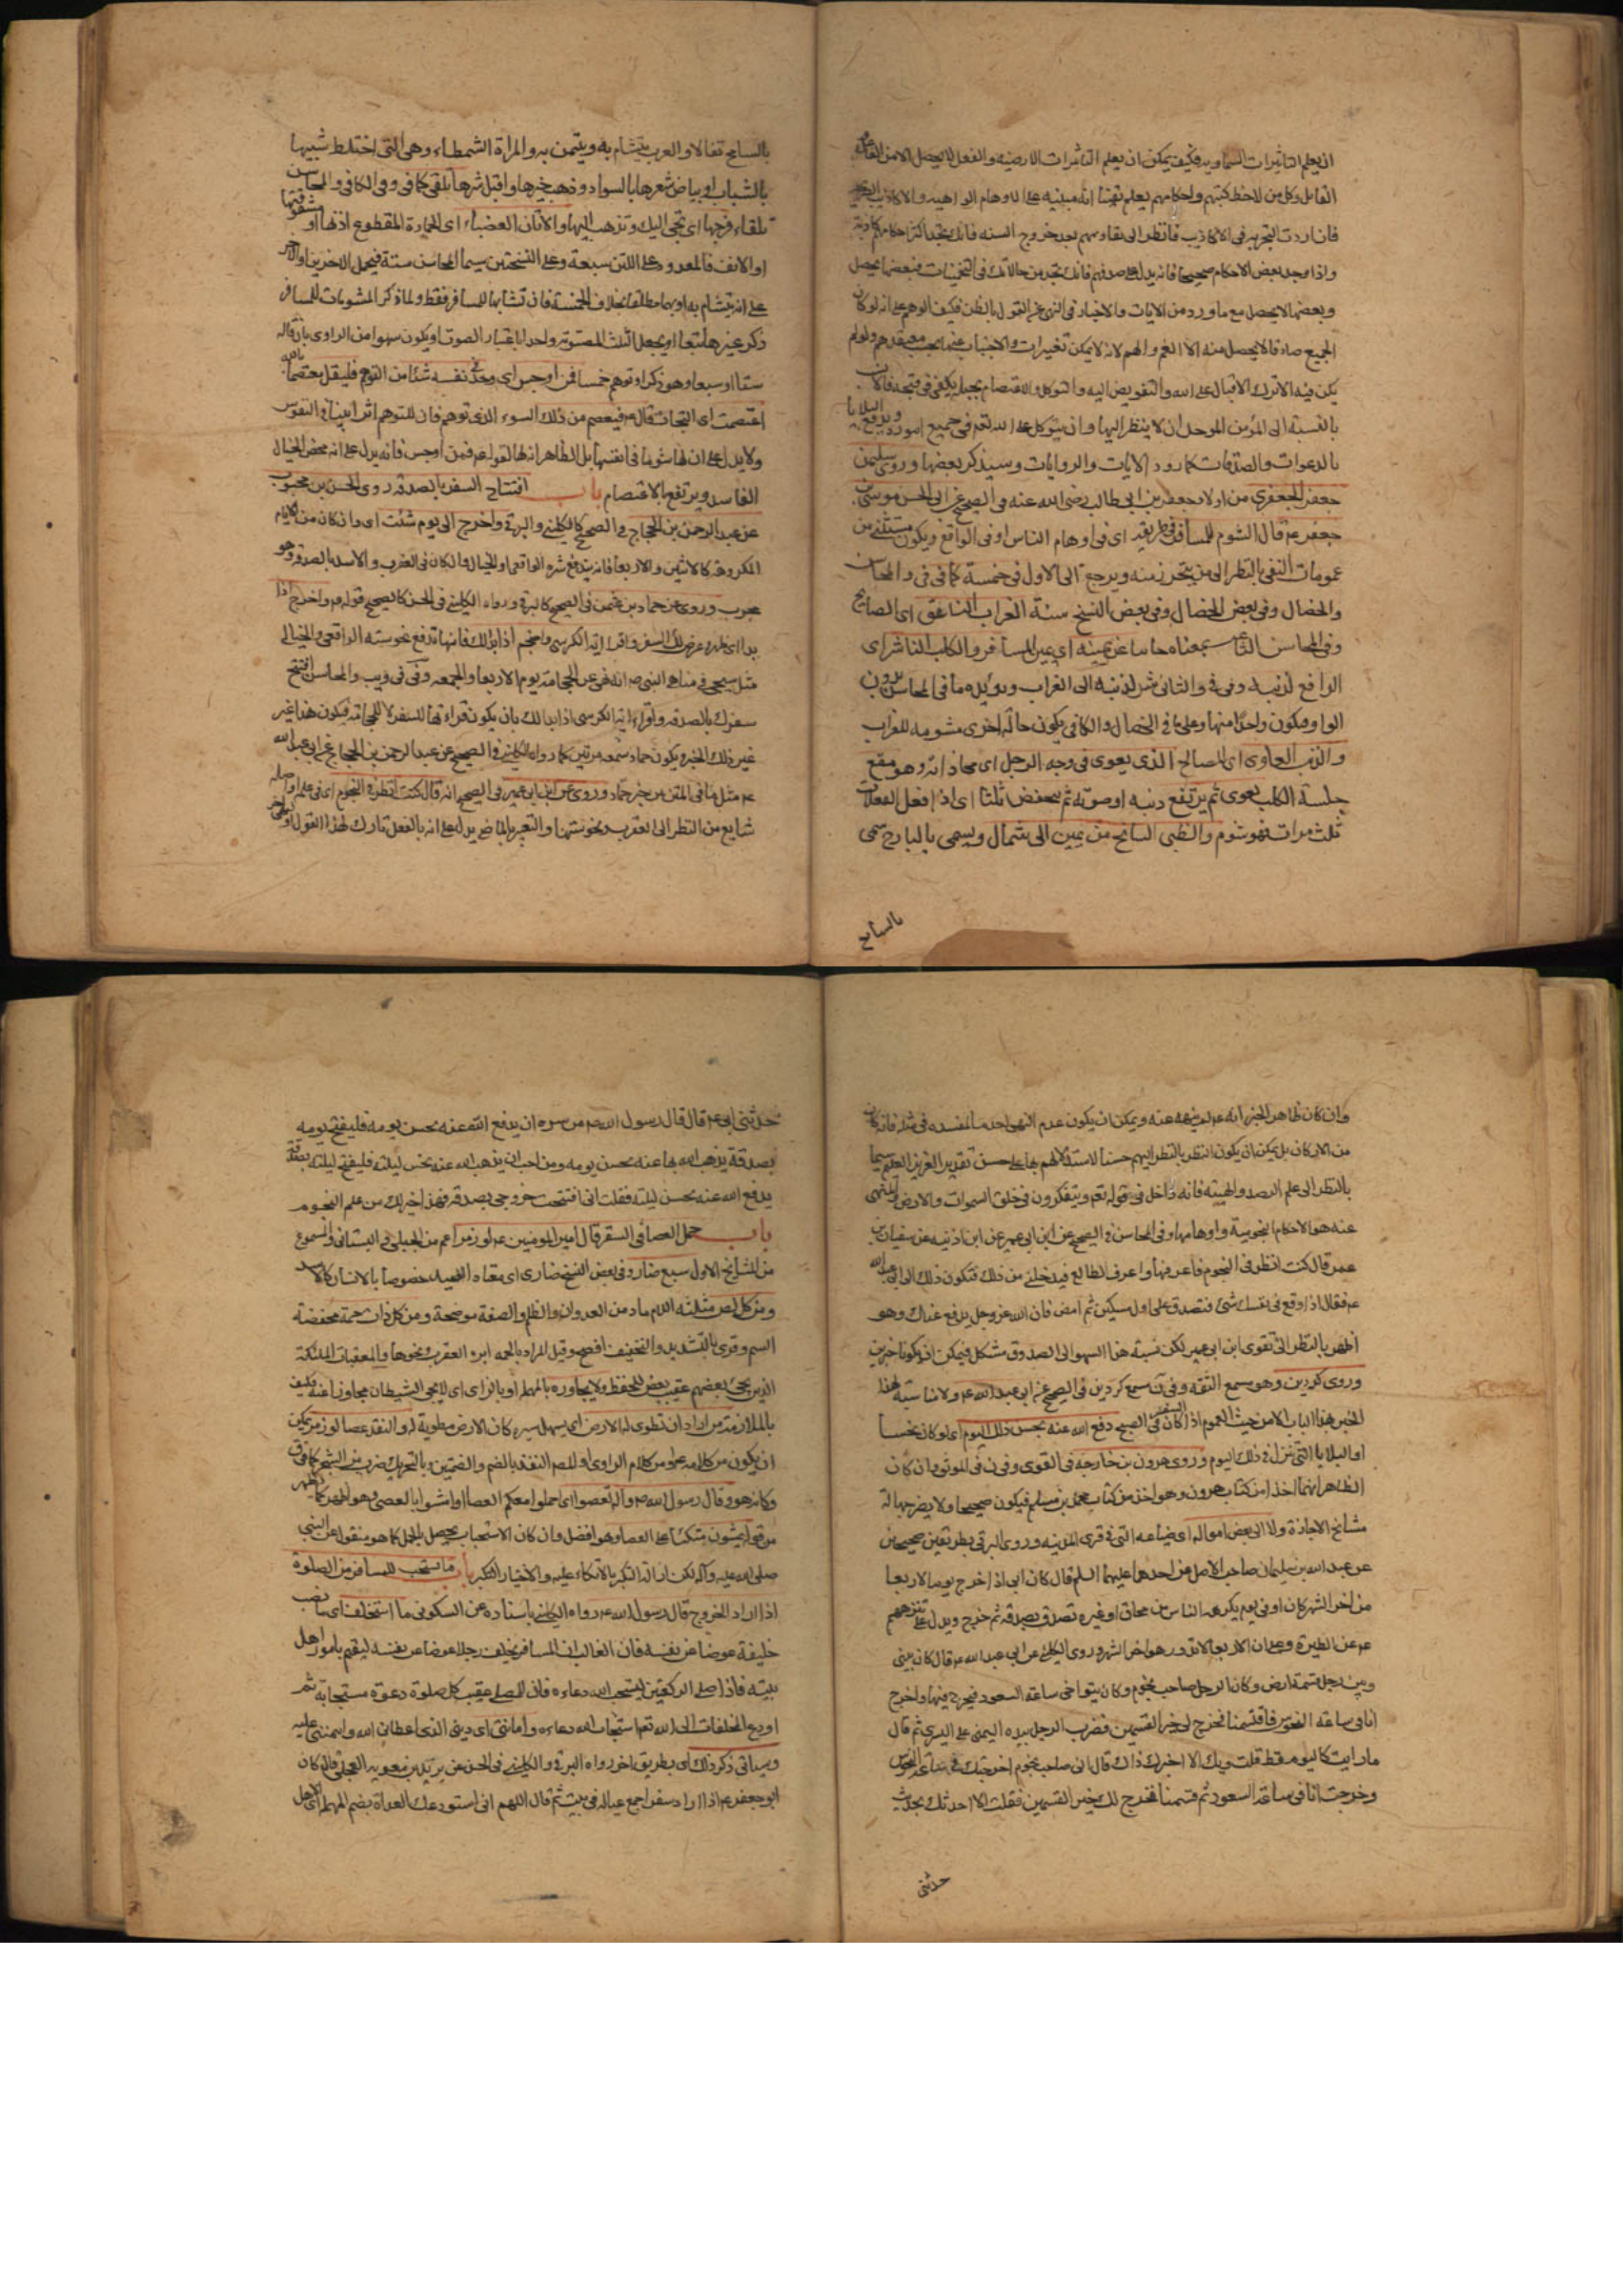 ان يعلم التاثيرات السماويه فكيف يمكن ان يعلم التاثيرات الارضيه والفعل لا يحصل الا من الفاعل
القابل وكل من لاحظ كتبهم واحكامهم يعلم يقينا انه مبنيه على الاوهام الواهيه والاكاذيب
فان اردت التجربه فى الاكاذيب فانظر الى تقاويمهم بعد خروج السنه فانك تجد اكثر احكامهم كاذبة
واذا وجد بعض الاحكام صحيحا فانه يدل على صدقهم فانك تجد من حالاتك فى التخمينات فبعضها يحصل
وبعضها لا يحصل مع ما ورد من الايات والاخبار فى النهى عن القول بالظن فكيف الوهم على انه لو كان
الجميع صادقا لا يحصل منه الا الغم والهم لانه لا يمكن تغييرات والاجتناب عنها بحسب معتقدهم ولو لم
يكن فيه الا ترك الاقبال على الله والتفويض اليه والتوكل والاعتصام بحبله يكفى فى قبحه فالان
بالنسبة الى المؤمن الموحد ان لا ينظر اليها وان يتوكل على الله تعالى فى جميع اموره ويدفع البلايا
بالدعوات والصدقات كما ورد الايات والروايات وسيذكر بعضها وروى سليمن
جعفر الجعفرى من اولاد جعفر بن ابى طالب رضى الله عنه فى الصحيح عن ابى الحسن موسى بن
جعفر ع قال الشوم للمسافر فى طريقه اى فى اوهام الناس او فى الواقع ويكون مستثنى من
عمومات النفى بالنظر الى من يتحرز منه ويرجع الى الاول فى خمسة كما فى فى والمحاسن
والخصال وفى بعض الخصال وفى بعض النسخ ستة الغراب الناعق اى الصايح
وفى المحاسن بمعناه حاسا عن يمينه اى يمين المسافر والكلب الناشر اى
الرافع لذنبه وفى فى والثانى شر لذنبه الى الغراب ويؤيده ما فى المحاسن بدون
الواو فيكون واحدا منها وعلى ما فى الخصال والكافى يكون حالة اخرى مشومه للغراب
والذئب العاوى اى الصالح الذى يعوى فى وجه الرجل اى محاذاته وهو مقع
جلسة الكلب يعوى ثم يرتفع دنبه او صوته ثم ينخفض ثلثا اى اذا فعل الفعلات
ثلث مرات فهو شوم والظبى السانح من يمين الى شمال ويسمى بالبارح سمى
بالسانح
بالسانح تفالا والعرب يتشام به ويتيمن به والمراة الشمطاء وهى التى اختلط شيبها
بالشباب او بياض شعرها بالسواد وذهب خيرها واقبل شرها تلقى كما فى وفى الكافى والمحاسن
تلقاء فرجها اى تجى اليك وتذهب اليها والاتان العضباء اى الحمارة المقطوع اذنها او مشقوقتها
او الانف فالمعدود على اللتن سبعة وعلى النسختين سيما المحاسن ستة فيحمل الاخرين
على انه يتشام به او بهما مطلقا بخلاف الخمسة فان تشابها للمسافر فقط ولما ذكر المشومات للمسافر
ذكر غيرها تبعا او يجعل الثلث المصوتة واحدا باعتبار الصوت او يكون سهوا من الراوى بان قاله
ستا او سبعا وهو ذكر او توهم خمسا فمن اوجس اى وجد فى نفسه شئا من التوهم فليقل معتصما بالله
اعتصمت اى التجات قال ع فيعصم من ذلك السوء الذى توهم فان للتوهم اثرا بينا فى النفوس
ولا يدل على ان لها شوما فى انفسها بل الظاهر انها لقوله ع فمن اوجس فانه يدل على انه محض الخيال
الفاسد ويرتفع بالاعتصام باب افتتاح السفر بالصدقة روى الحسن بن محبوب
عن عبد الرحمن بن الحجاج فى الصحيح كالكلينى والبرقى واخرج الى يوم شئت اى وان كان من الايام
المكروهة كالاثنين والاربعا فانه يندفع شره الواقعى والخيالى كالكان فى العقرب والاسد بالصدقة وهو
مجرب وروى عن حماد بن عثمن فى الصحيح كالبرقى ورواه الكلينى فى الحسن كالصحيح قوله ع واخرج اذا
بدا اى ظهر وعرض لك السفر واقرا اية الكرسى واحتجم اذا بدا لك فانها تدفع نحوسته الواقعى والخيالى
مثل سيجى فى مناهى النبى ص انه نهى عن الحجامة يوم الاربعا والجمعه وفى فى ويب والمحاسن افتتح
سفرك بالصدقه واقرا اية الكرسى اذا بدا لك بان يكون قراءتها للسفر لا للحجامة فيكون هذا غير
غير ذلك الخبر ويكون حماد سمعه مرتين كما رواه الكلينى فى الصحيح عن عبد الرحمن بن الحجاج عن ابى عبد الله
ع مثل ما فى المتن من خبر حماد وروى عن ابن ابى عمير فى الصحيح انه قال كنت انظر فى النجوم اى فى علمها
شايع من النظر الى العقرب ونحوستها والتعبير بالماضى يدل على انه بالفعل تارك لهذا القول
وان كان ظاهر الخبر انه ع لم ينهه عنه ويمكن ان يكون عدم النهى احد ما لمفسده فى مثله فانه كان
من الاركان بل يمكن ان يكون النظر بالنظر اليهم حسنا لاستدلالهم بها على حسن تقدير العزيز العليم سيما
بالنظر الى علم الرصد والهيئه فانه داخل فى قوله تعالى ويتفكرون فى خلق السموات والارض والمنهى
عنه هو الاحكام النجوميه واوهامها وفى المحاسن فى الصحيح عن ابن ابى عمير عن ابن اذنيه عن سفيان بن
عمر قال كنت انظر فى النجوم فاعرفها واعرف الطالع فيدخلنى من ذلك فشكوت ذلك الى ابى عبد الله
ع فقال اذا وقع فى نفسك شئ فتصدق على اول مسكين ثم امض فان الله عز وجل يدفع عنك وهو
اظهر بالنظر الى تقوى ابن ابى عمير لكن نسبة هذا السهو الى الصدوق مشكل فيمكن ان يكونا خبرين
وروى كردين وهو مسمع الثقه وفى ن مسمع كردين فى الصحيح عن ابى عبد الله ع ولا مناسبة لهذا
الخبر بهذا الباب الا من حيث العموم اذا كان فى السفر الصبح دفع الله عنه نحس ذلك اليوم اى لو كان نحسا
او البلايا التى تنزل فى ذلك اليوم وروى هرون بن خارجه فى القوى وفى ن فى الموثق وان كان
الظاهر انهما اخذا من كتاب هرون وهو اخذ من كتاب محمد بن مسلم فيكون صحيحا ولا يضر جهالة
مشايخ الاجازة ولا الى بعض امواله اى ضياعه التى فى قرى المدينه وروى البرقى بطريقين صحيحين
عن عبد الله بن سليمان صاحب الاصل عن احدهما عليهما السلم قال كان ابى اذا خرج يوم الاربعا
من اخر الشهر كان او فى يوم يكرهه الناس من محاق او غيره تصدق بصدقه ثم خرج ويدل على تنزههم
ع عن الطيرة وعلى ان الاربعا لا تدور هو اخر الشهر وروى الكلينى عن ابى عبد الله ع قال كان بينى
وبين رجل قسمة ارض وكان الرجل صاحب نجوم وكان يتوخى ساعة السعود فيخرج فيها واخرج
انا فى ساعة النحوس فاقتسمنا فخرج لى خير القسمين فضرب الرجل بيده اليمنى على اليسرى ثم قال
ما رايت كاليوم قط قلت ويك الا اخبرك ذاك قال انى صاحب نجوم اخرجتك فى ساعة النحوس
وخرجت انا فى ساعة السعود ثم قسمنا فخرج لك خير القسمين فقلت الا احدثك بحديث
حدثنى
حدثنى ابى ع قال قال رسول الله ص من سره ان يدفع الله عنه نحس يومه فليفتح يومه
بصدقة يذهب الله بها عنه نحس يومه ومن احب ان يذهب الله عنه نحس ليلته فليفتح ليلته بصدقة
يدفع الله عنه نحس ليلته فقلت انى افتتحت خروجى بصدقة فهذا خير لك من علم النجوم
باب حمل العصا فى السفر قال امير المومنين ع لوز مر اعم من الجبلى والبستانى والمسموع
من المشايخ الاول سبع ضار وفى بعض النسخ ضارى اى معتاد الصيد خصوصا بالانسان كالاسد
ومن كل لص مثلثه اللام عاد من العدوان والظلم والصفة موضحة ومن كل ذات حمة مخففة
السم وقرى بالتشديد والتخفيف افصح وقيل المراد بالحمه ابره العقرب ونحوها والمعقبات الملئكة
الذين يجئ بعضهم عقيب بعض للحفظ ولا يجاوره بالمهملة او بالزاى اى لا يجى الشيطان مجاوزا عنه فكيف
بالملازمة من اراد ان تطوى له الارض اى يسهل سيره كان الارض مطوية له والنقد عصا لوز مر يمكن
ان يكون من كلامه ع او من كلام الراوى او للص النقد بالضم والضمتين وبالتحريك ضرب من الشجر كما فى ق
وكانه هو وقال رسول الله ص واله تعصوا اى احملوا معكم العصا او امشوا بالعصى وهو اظهر كما يظهر
من قوله يمشون متكئا على العصا وهو افضل وان كان الاستحباب يحصل بالحمل كما هو منقول عن النبى
صلى الله عليه وآله لكن ازالة التكبر بالاتكاء عليه والاختيار التكبر باب ما يستحب للمسافر من الصلوة
اذا اراد الخروج قال رسول الله ص رواه الكلينى باسناده عن السكونى ما استخلف اى ما نصب
خليفة عوضا عن نفسه فان الغالب ان المسافر يخلف رجلا عوضا عن نفسه ليقيم بامور اهل
بيته فاذا صلى الركعتين ليستجيب الله دعاءه فان للمصلى عقيب كل صلوة دعوة مستجابة ثم
اودع المخلفات الى الله تعالى استجاب الله دعاءه وامانتى اى دينى الذى اعطانى الله وايتمننى عليه
وسياتى ذكر ذلك اى بطريق اخر رواه البرقى والكلينى فى الحسن عن بريد بن معويه العجلى قال كان
ابو جعفر ع اذا اراد سفرا جمع عياله فى بيت ثم قال اللهم انى استودعك الغداة بضم المهملة اى الاهل